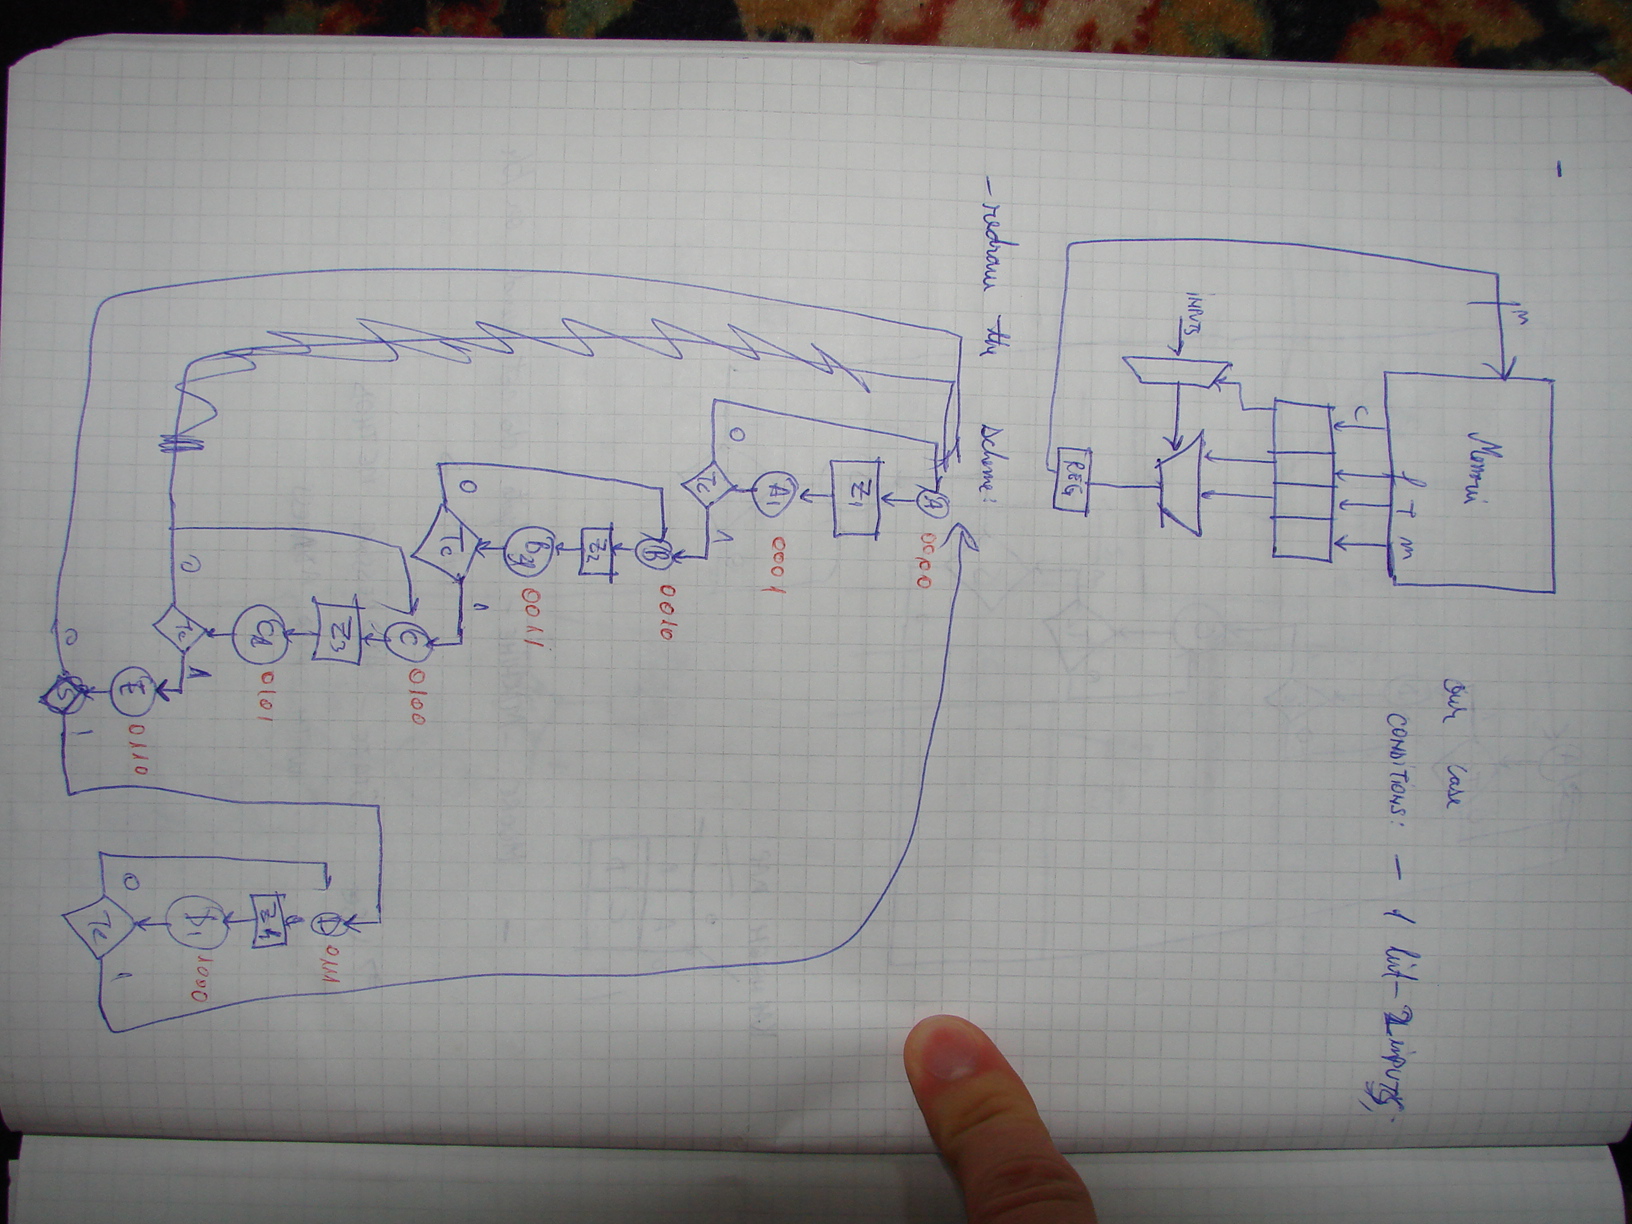 -
M
C
f
T
m
INPUTS
REG
our case
CONDITIONS: - 1 bit - 2 inputs;
- redraw the scheme:
A 0000
Z1
A1 0001
TC
0
1
B 0010
Z2
B1 0011
TC
0
1
C 0100
Z3
C1 0101
TC
0
1
E 0110
S
0
1
D 0111
Z4
D1 1000
TC
0
1